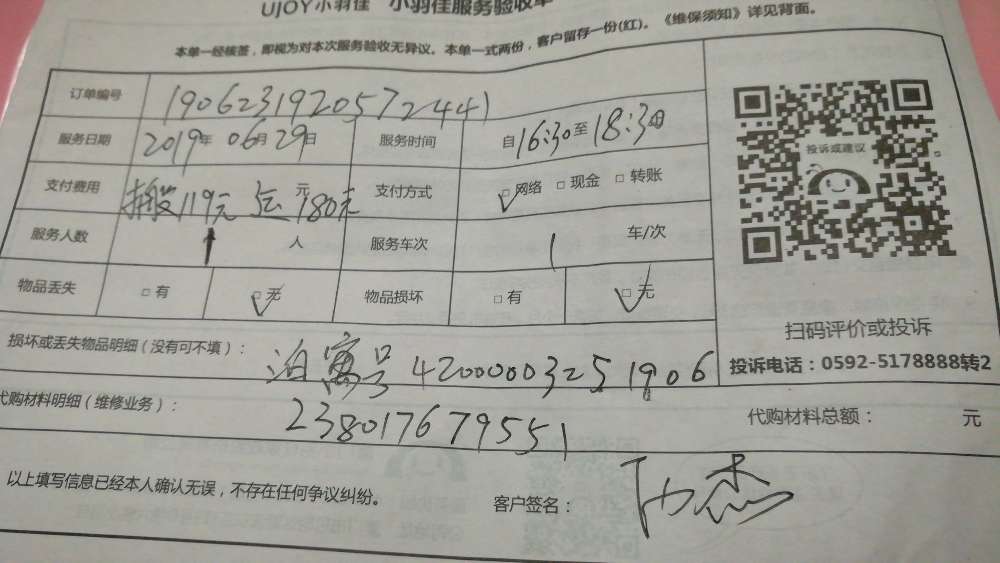 UJOY小羽佳 小羽佳服务验收单
本单一经核签，即视为对本次服务验收无异议。本单一式两份，客户留存一份(红)。《维保须知》详见背面。
订单编号 190623192057244​1
服务日期 2019年 06月 29日 服务时间 自16:30至18:30
支付费用 搬 119元 运 元 180元 支付方式 □网络 □现金 □转账
服务人数 1 人 服务车次 1 车/次
物品丢失 □有 □无 物品损坏 □有 □无
投诉或建议
扫码评价或投诉
投诉电话：0592-5178888转2
损坏或丢失物品明细（没有可不填）： 泊寓号 4200000325 1906
代购材料明细（维修业务）： 238017679551 代购材料总额： 元
以上填写信息已经本人确认无误，不存在任何争议纠纷。 客户签名：